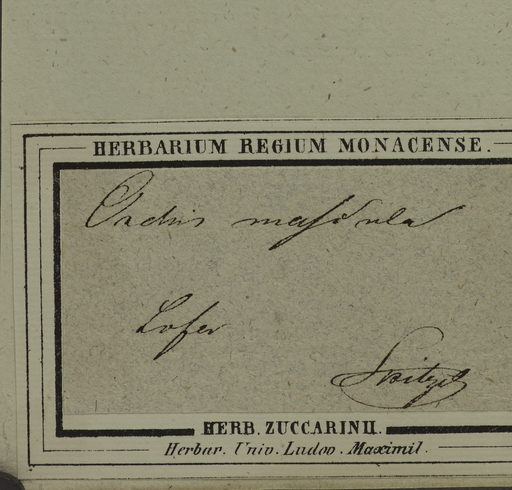 HERBARIUM REGIUM MONACENSE.
Orchis mascula
Lofer
Spitzel
HERB. ZUCCARINII.
Herbar. Univ. Ludov. Maximil.